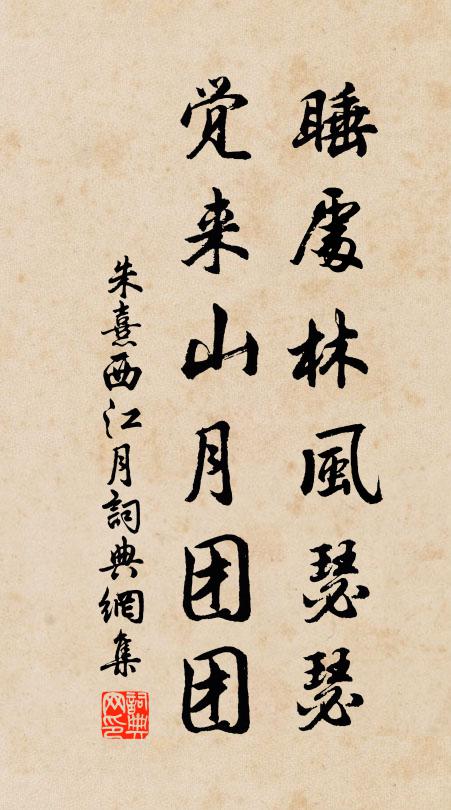 睡處林風瑟瑟
覚来山月团团
朱熹西江月詞典網集
詞典网印